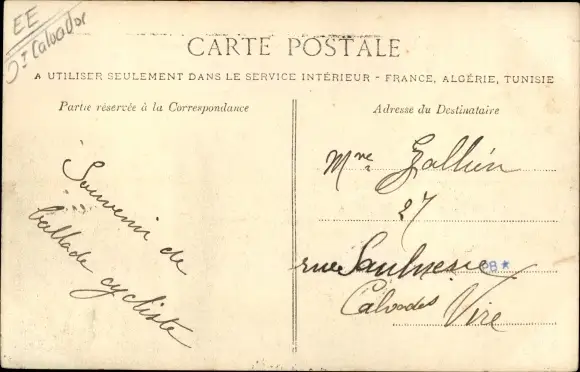 EE
Dt Calvados
CARTE POSTALE
A UTILISER SEULEMENT DANS LE SERVICE INTÉRIEUR - FRANCE, ALGÉRIE, TUNISIE
Partie réservée à la Correspondance
Souvenir de
ballade cycliste
Adresse du Destinataire
Mme Gallien
27
rue Saulnerie
PB★
Calvados Vire